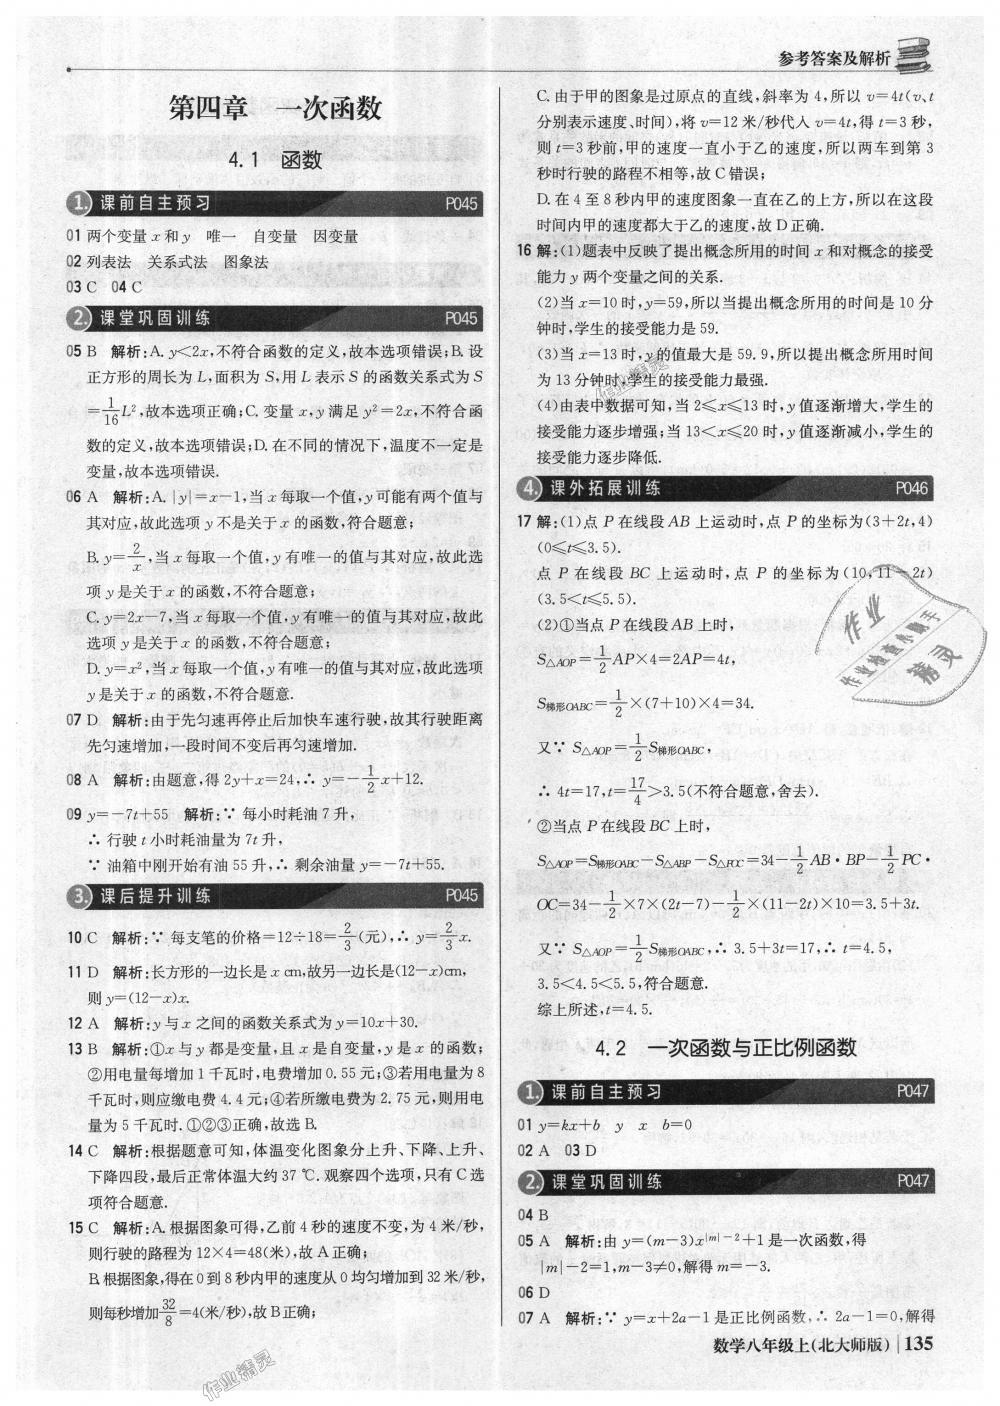 参考答案及解析
第四章 一次函数
4.1 函数
1. 课前自主预习 P045
01 两个变量 x 和 y 唯一 自变量 因变量
02 列表法 关系式法 图象法
03 C 04 C
2. 课堂巩固训练 P045
05 B 解析:A. y<2x,不符合函数的定义,故本选项错误;B. 设
正方形的周长为 L,面积为 S,用 L 表示 S 的函数关系式为 S
=1/16L²,故本选项正确;C. 变量 x,y 满足 y²=2x,不符合函
数的定义,故本选项错误;D. 在不同的情况下,温度不一定是
变量,故本选项错误.
06 A 解析:A. |y|=x-1,当 x 每取一个值,y 可能有两个值与
其对应,故此选项 y 不是关于 x 的函数,符合题意;
B. y=2/x,当 x 每取一个值,y 有唯一的值与其对应,故此选
项 y 是关于 x 的函数,不符合题意;
C. y=2x-7,当 x 每取一个值,y 有唯一的值与其对应,故此
选项 y 是关于 x 的函数,不符合题意;
D. y=x²,当 x 每取一个值,y 有唯一的值与其对应,故此选项
y 是关于 x 的函数,不符合题意.
07 D 解析:由于先匀速再停止后加快车速行驶,故其行驶距离
先匀速增加,一段时间不变后再匀速增加.
08 A 解析:由题意,得 2y+x=24,∴ y=-1/2x+12.
09 y=-7t+55 解析:∵ 每小时耗油 7 升,
∴ 行驶 t 小时耗油量为 7t 升,
∵ 油箱中刚开始有油 55 升,∴ 剩余油量 y=-7t+55.
3. 课后提升训练 P045
10 C 解析:∵ 每支笔的价格=12÷18=2/3(元),∴ y=2/3x.
11 D 解析:长方形的一边长是 x cm,故另一边长是(12-x)cm,
则 y=(12-x)x.
12 A 解析:y 与 x 之间的函数关系式为 y=10x+30.
13 B 解析:①x 与 y 都是变量,且 x 是自变量,y 是 x 的函数;
②用电量每增加 1 千瓦时,电费增加 0.55 元;③若用电量为 8
千瓦时,则应缴电费 4.4 元;④若所缴电费为 2.75 元,则用电
量为 5 千瓦时.①②③正确,故选 B.
14 C 解析:根据题意可知,体温变化图象分上升、下降、上升、
下降四段,最后正常体温大约 37 ℃. 观察四个选项,只有 C 选
项符合题意.
15 C 解析:A. 根据图象可得,乙前 4 秒的速度不变,为 4 米/秒,
则行驶的路程为 12×4=48(米),故 A 正确;
B. 根据图象,得在 0 到 8 秒内甲的速度从 0 均匀增加到 32 米/秒,
则每秒增加32/8=4(米/秒),故 B 正确;
C. 由于甲的图象是过原点的直线,斜率为 4,所以 v=4t(v、t
分别表示速度、时间),将 v=12 米/秒代人 v=4t,得 t=3 秒,
则 t=3 秒前,甲的速度一直小于乙的速度,所以两车到第 3
秒时行驶的路程不相等,故 C 错误;
D. 在 4 至 8 秒内甲的速度图象一直在乙的上方,所以在这段
时间内甲的速度都大于乙的速度,故 D 正确.
16 解:(1)题表中反映了提出概念所用的时间 x 和对概念的接受
能力 y 两个变量之间的关系.
(2)当 x=10 时,y=59,所以当提出概念所用的时间是 10 分
钟时,学生的接受能力是 59.
(3)当 x=13 时,y 的值最大是 59.9,所以提出概念所用时间
为 13 分钟时,学生的接受能力最强.
(4)由表中数据可知,当 2⩽x⩽13 时,y 值逐渐增大,学生的
接受能力逐步增强;当 13<x⩽20 时,y 值逐渐减小,学生的
接受能力逐步降低.
4. 课外拓展训练 P046
17 解:(1)点 P 在线段 AB 上运动时,点 P 的坐标为(3+2t,4)
(0⩽t⩽3.5).
点 P 在线段 BC 上运动时,点 P 的坐标为(10,11-2t)
(3.5<t⩽5.5).
(2)①当点 P 在线段 AB 上时,
S△AOP=1/2AP×4=2AP=4t,
S梯形OABC=1/2×(7+10)×4=34.
又∵ S△AOP=1/2S梯形OABC,
∴ 4t=17,t=17/4>3.5(不符合题意,舍去).
②当点 P 在线段 BC 上时,
S△AOP=S梯形OABC-S△ABP-S△POC=34-1/2AB·BP-1/2PC·
OC=34-1/2×7×(2t-7)-1/2×(11-2t)×10=3.5+3t.
又∵ S△AOP=1/2S梯形OABC,∴ 3.5+3t=17,∴ t=4.5,
3.5<4.5<5.5,符合题意.
综上所述,t=4.5.
4.2 一次函数与正比例函数
1. 课前自主预习 P047
01 y=kx+b y x b=0
02 A 03 D
2. 课堂巩固训练 P047
04 B
05 A 解析:由 y=(m-3)x^|m|-2+1 是一次函数,得
|m|-2=1,m-3≠0,解得 m=-3.
06 D
07 A 解析:∵ y=x+2a-1 是正比例函数,∴ 2a-1=0,解得
数学八年级上(北大师版) 135
作业精灵
作业
作业检查小助手
精灵
作业精灵